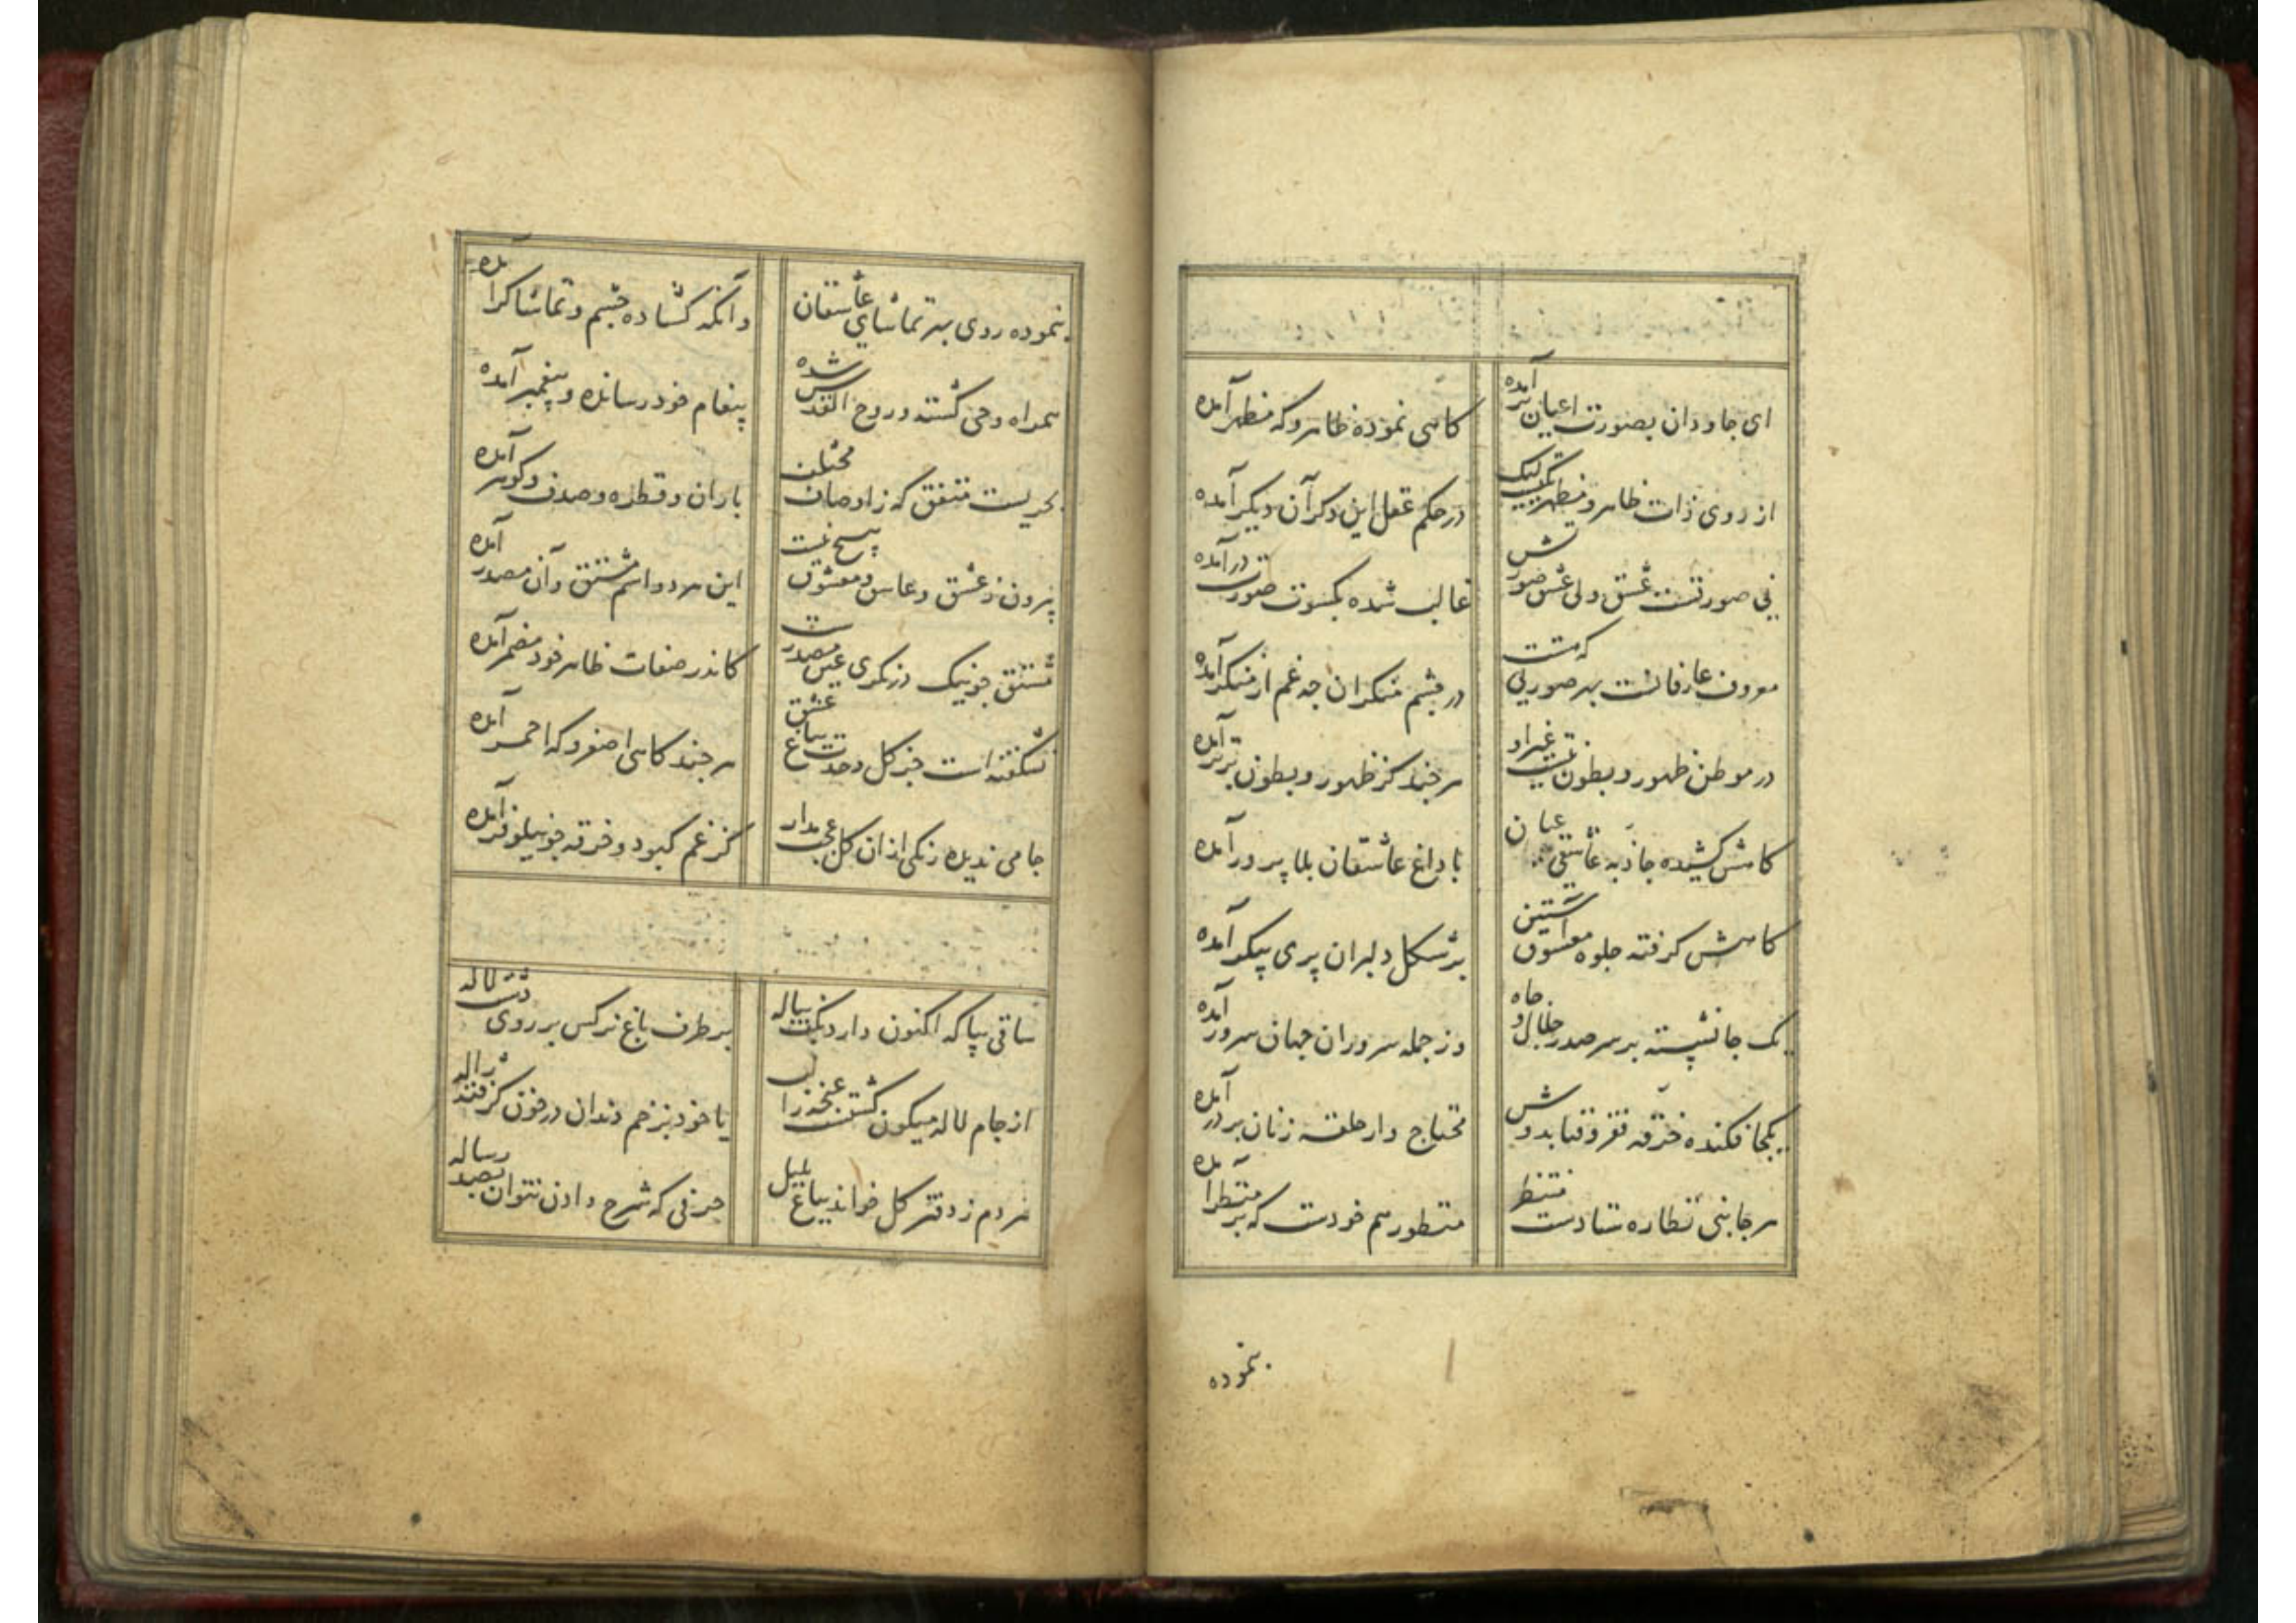 ای جاودان بصورت اعیان برآمده
کاهی نموده ظاهر و که مظهر آمده
از روی ذات ظاهر و مظهر یکیست لیک
در حکم عقل این دکر آن دیکر آمده
بی صورتست عشق ولی عشق صورتش
غالب شده بکسوت صورت درآمده
معروف عارفانست بهر صورتی که هست
در چشم منکران چه غم ار منکر آمده
در موطن ظهور و بطون نیست غیر او
هر چند کز ظهور و بطون برتر آمده
کاهش کشیده جاذبه عاشقی عنان
با داغ عاشقان بلا پرور آمده
کاهش کرفته جلوه معشوق آستین
بر شکل دلبران پری پیکر آمده
یک جا نشسته بر سر صدر جلال و جاه
وز جمله سروران جهان سرور آمده
یکجا فکنده خرقه فقر و فنا بدوش
محتاج وار حلقه زنان بر در آمده
هر جانبی نظاره ستادست منتظر
منظور هم خودست که بر منظر آمده
بنموده
بنموده روی بهر تماشای عاشقان
وانکه کشاده چشم و تماشاکر آمده
همراه وحی کشته و روح القدس شده
پیغام خود رسانده و پیغمبر آمده
بحریست متفق که ز اوصاف مختلف
باران و قطره و صدف و کوهر آمده
بیرون ز عشق و عاشق و معشوق هیچ نیست
این هر دو اسم مشتق و آن مصدر آمده
مشتق چو نیک درنکری عین مصدرست
کاندر صفات ظاهر خود مضمر آمده
نشکفته است جز کل وحدت بباغ عشق
هر چند کاهی اصفر و که احمر آمده
جامی ندیده رنکی ازان کل عجب مدار
کز غم کبود و خرقه چو نیلوفر آمده
ساقی بیا که اکنون دارد بکف پیاله
بر طرف باغ نرکس بر روی دشت لاله
از جام لاله میکون کشتست غنچه را لب
یا خود بزخم دندان در خون کرفته ژاله
هر دم ز دفتر کل خواند بباغ بلبل
حرفی که شرح دادن نتوان بصد رساله